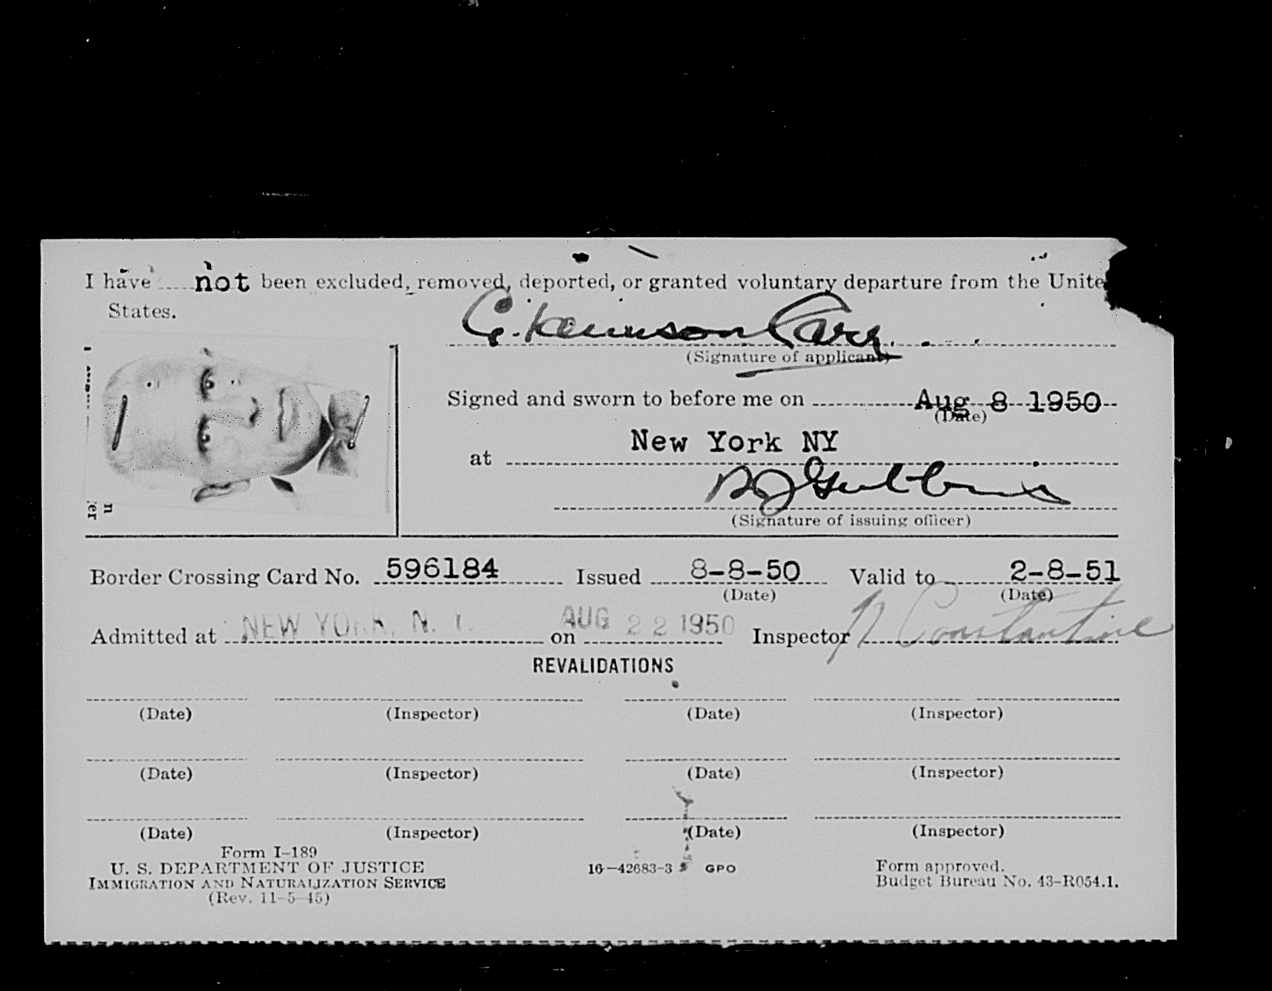 I have not been excluded, removed, deported, or granted voluntary departure from the Unite
States.
(Signature of applicant)
Signed and sworn to before me on Aug 8 1950
(Date)
New York NY
at
(Signature of issuing officer)
Border Crossing Card No. 596184 Issued 8-8-50 Valid to 2-8-51
(Date) (Date)
Admitted at NEW YORK, N. Y. on AUG 22 1950 Inspector N Constantine
REVALIDATIONS
(Date) (Inspector) (Date) (Inspector)
(Date) (Inspector) (Date) (Inspector)
(Date) (Inspector) (Date) (Inspector)
Form I-189
U. S. DEPARTMENT OF JUSTICE
IMMIGRATION AND NATURALIZATION SERVICE
(Rev. 11-5-45)
16—42683-3 GPO
Form approved.
Budget Bureau No. 43-R054.1.